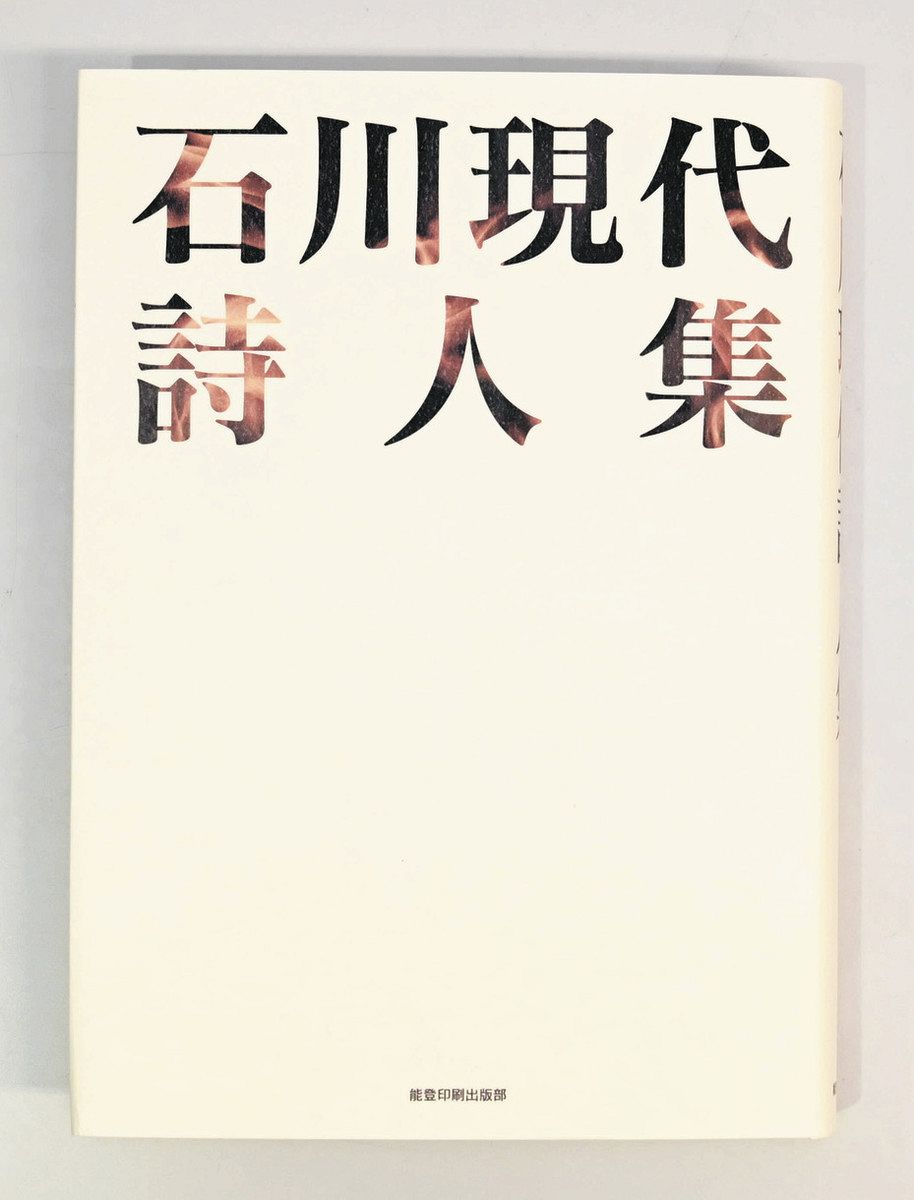 石川現代
詩人集
能登印刷出版部